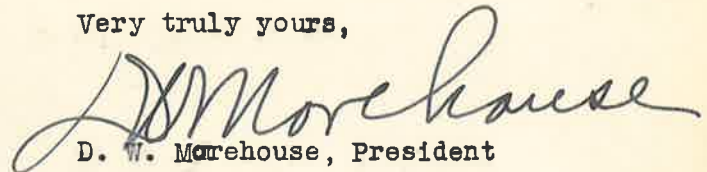 Very truly yours,
DWMorehouse
D. W. Morehouse, President